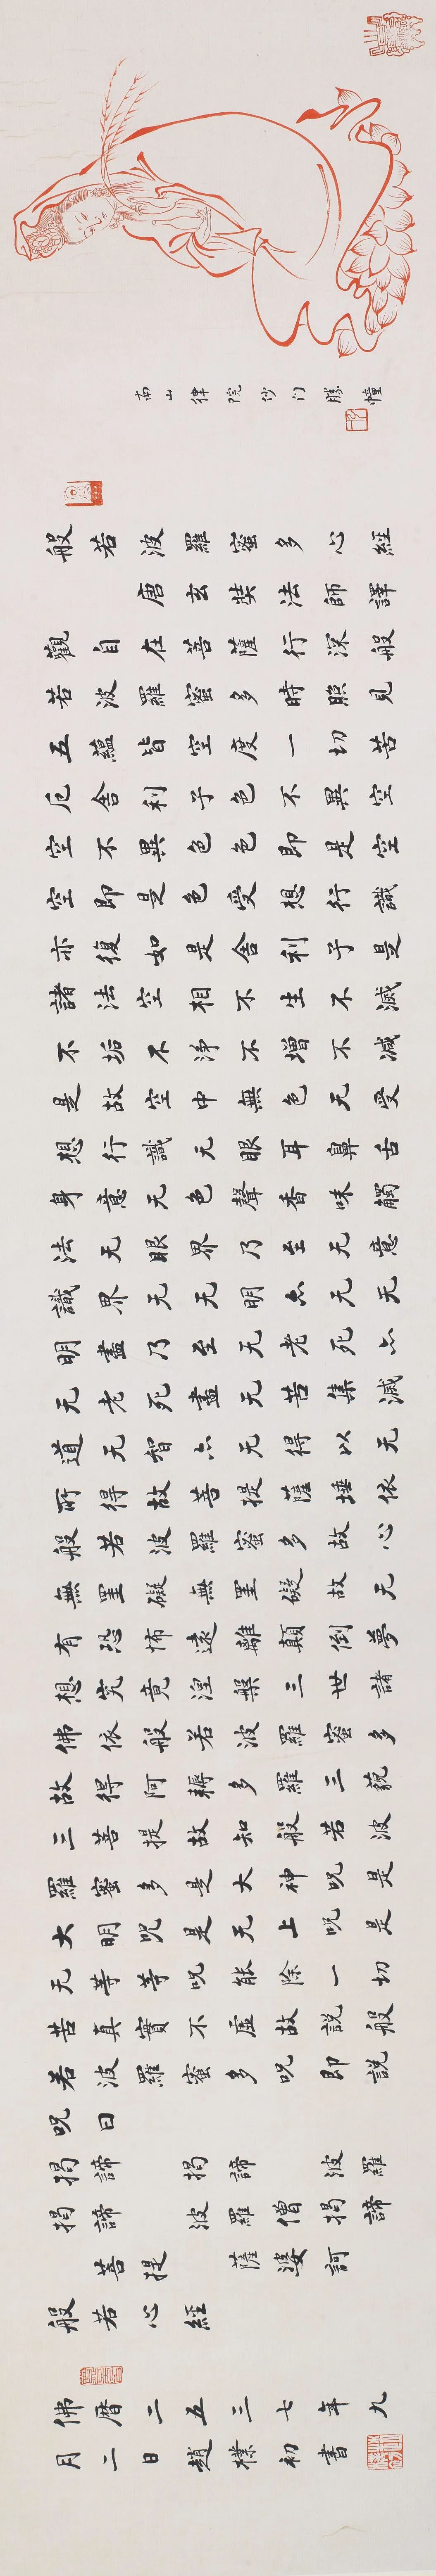 南山律院沙门勝幢
般若波羅蜜多心經
唐玄奘法師譯
觀自在菩薩行深般
若波羅蜜多時照見
五蘊皆空度一切苦
厄舍利子色不異空
空不異色色即是空
空即是色受想行識
亦復如是舍利子是
諸法空相不生不滅
不垢不净不增不减
是故空中無色无受
想行識无眼耳鼻舌
身意无色聲香味觸
法无眼界乃至无意
識界无无明亦无无
明盡乃至无老死亦
无老死盡无苦集滅
道无智亦无得以无
所得故菩提薩埵依
般若波羅蜜多故心
無罣礙無罣礙故无
有恐怖遠離顛倒夢
想究竟涅槃三世諸
佛依般若波羅蜜多
故得阿耨多羅三藐
三菩提故知般若波
羅蜜多是大神呪是
大明呪是无上呪是
无等等呪能除一切
苦真實不虛故説般
若波羅蜜多呪即説
呪曰
揭諦 揭諦 波羅
揭諦 波羅僧揭諦
菩提 薩婆訶
般若心經
佛曆二五三七年九
月二日趙樸初書